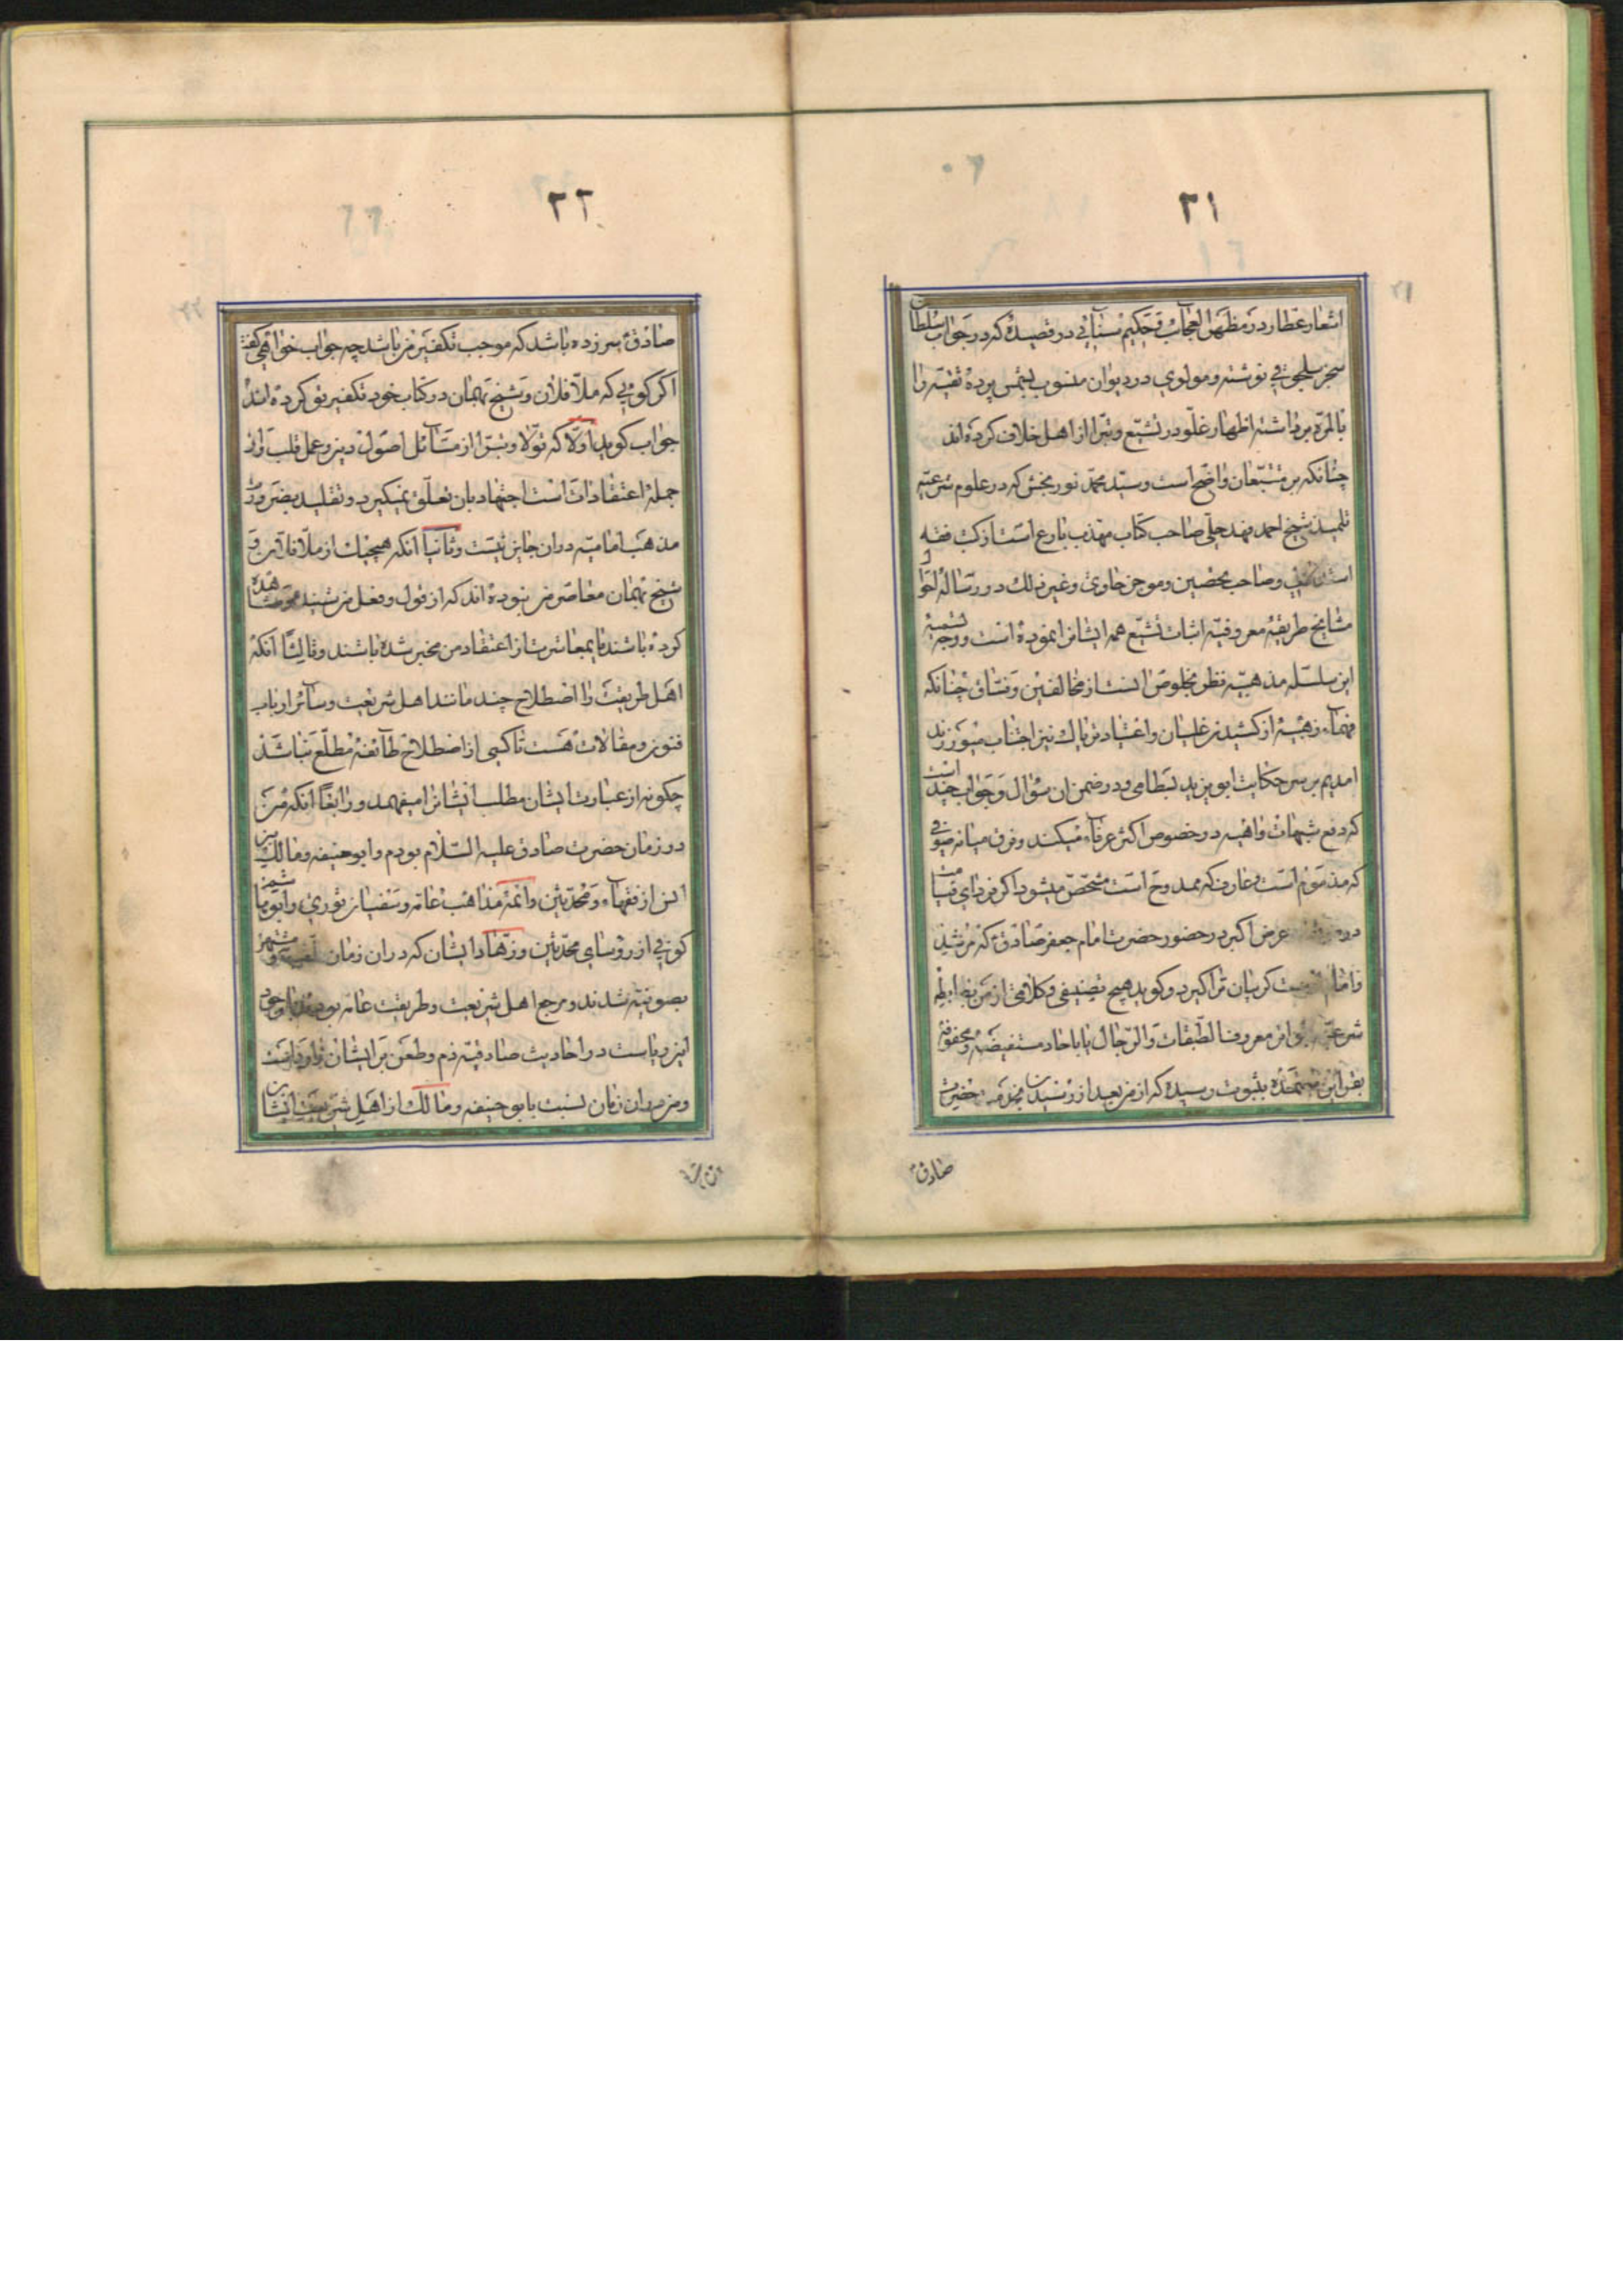 ۲۱
اشعار عطار در مظهر العجائب و حکیم سنائی در قصیده که در جواب سلطان
سنجر سلجوقی نوشته و مولوی در دیوان منسوب بشمس پرده تقیه را
بالمره برداشته اظهار غلو در تشیع و تبرا از اهل خلاف کرده اند
چنانکه بر متتبعان واضح است و سید محمد نوربخش که در علوم شرعیه
تلمیذ شیخ احمد فهد حلی صاحب کتاب مهذب بارع است از کتب فقه
و صاحب تحصین و موجز حاوی و غیر ذلک در رساله
مشایخ طریقه معروفیه اثبات تشیع همه ایشانرا نموده است و وجه تسمیه
این سلسله مذهبیه نظر بخلوص انست از مخالفین و نساق چنانکه
فقهاء ذهبیه از کشیدن غلیان و اعتیاد تریاک نیز اجتناب میورزند
امدیم بر سر حکایت ابویزید بسطامی و در ضمن ان سؤال و جواب چند است
که دفع شبهات واهیه در خصوص اکثر عرفاء میکند و فرق میانه صوفی
که مذموم است و عارف که ممدوح است مشخص میشود اگر فردای قیامت
در عرض اکبر در حضور حضرت امام جعفر صادق ع که مرشد
و امام کریبان ترا گیرد و گوید هیچ تصنیفی و کلامی از من بضابطه
شرعیه معروف الطبقات و الرجال یا باحاد مستفیضه و محفوفه
بقراین بثبوت رسیده که از من بعد از رسیدن بخدمت حضرت
صادق ع
۲۲
صادق ع سر زده باشد که موجب تکفیر من باشد چه جواب خواهی گفت
اگر گویی که ملا فلان و شیخ بهمان در کتاب خود تکفیر تو کرده اند
جواب گوید اولا که تولا و تبرا از مسائل اصول دین و عمل قلب و از
جمله اعتقادات است اجتهاد بان تعلق نمیگیرد و تقلید بضرورت
مذهب امامیه در ان جایز نیست و ثانیا انکه هیچیک از ملا فلان و
شیخ بهمان معاصر من نبوده اند که از قول و فعل من شنیده و مشاهده
کرده باشند یا بمعاشرت از اعتقاد من مخبر شده باشند و ثالثا انکه
اهل طریقت را اصطلاح چند مانند اهل شریعت و سائر ارباب
فنون و مقالات هست تا کسی از اصطلاح طائفه مطلع نباشد
چگونه از عبارت ایشان مطلب ایشانرا میفهمد و رابعا انکه من
در زمان حضرت صادق علیه السلام بودم و ابوحنیفه و مالک بن
انس از فقهاء و محدثین و ائمه مذاهب عامه و سفیان ثوری و ابوهاشم
کوفی از رؤسای محدثین و زهاد ایشان که در ان زمان مشهور
بصوفیه شدند و مرجع اهل شریعت و طریقت عامه بودند با وجود
این ریاست در احادیث صادقیه ذم و طعن بر ایشان وارد است
و من در ان زمان نسبت بابوحنیفه و مالک از اهل شریعت ایشان